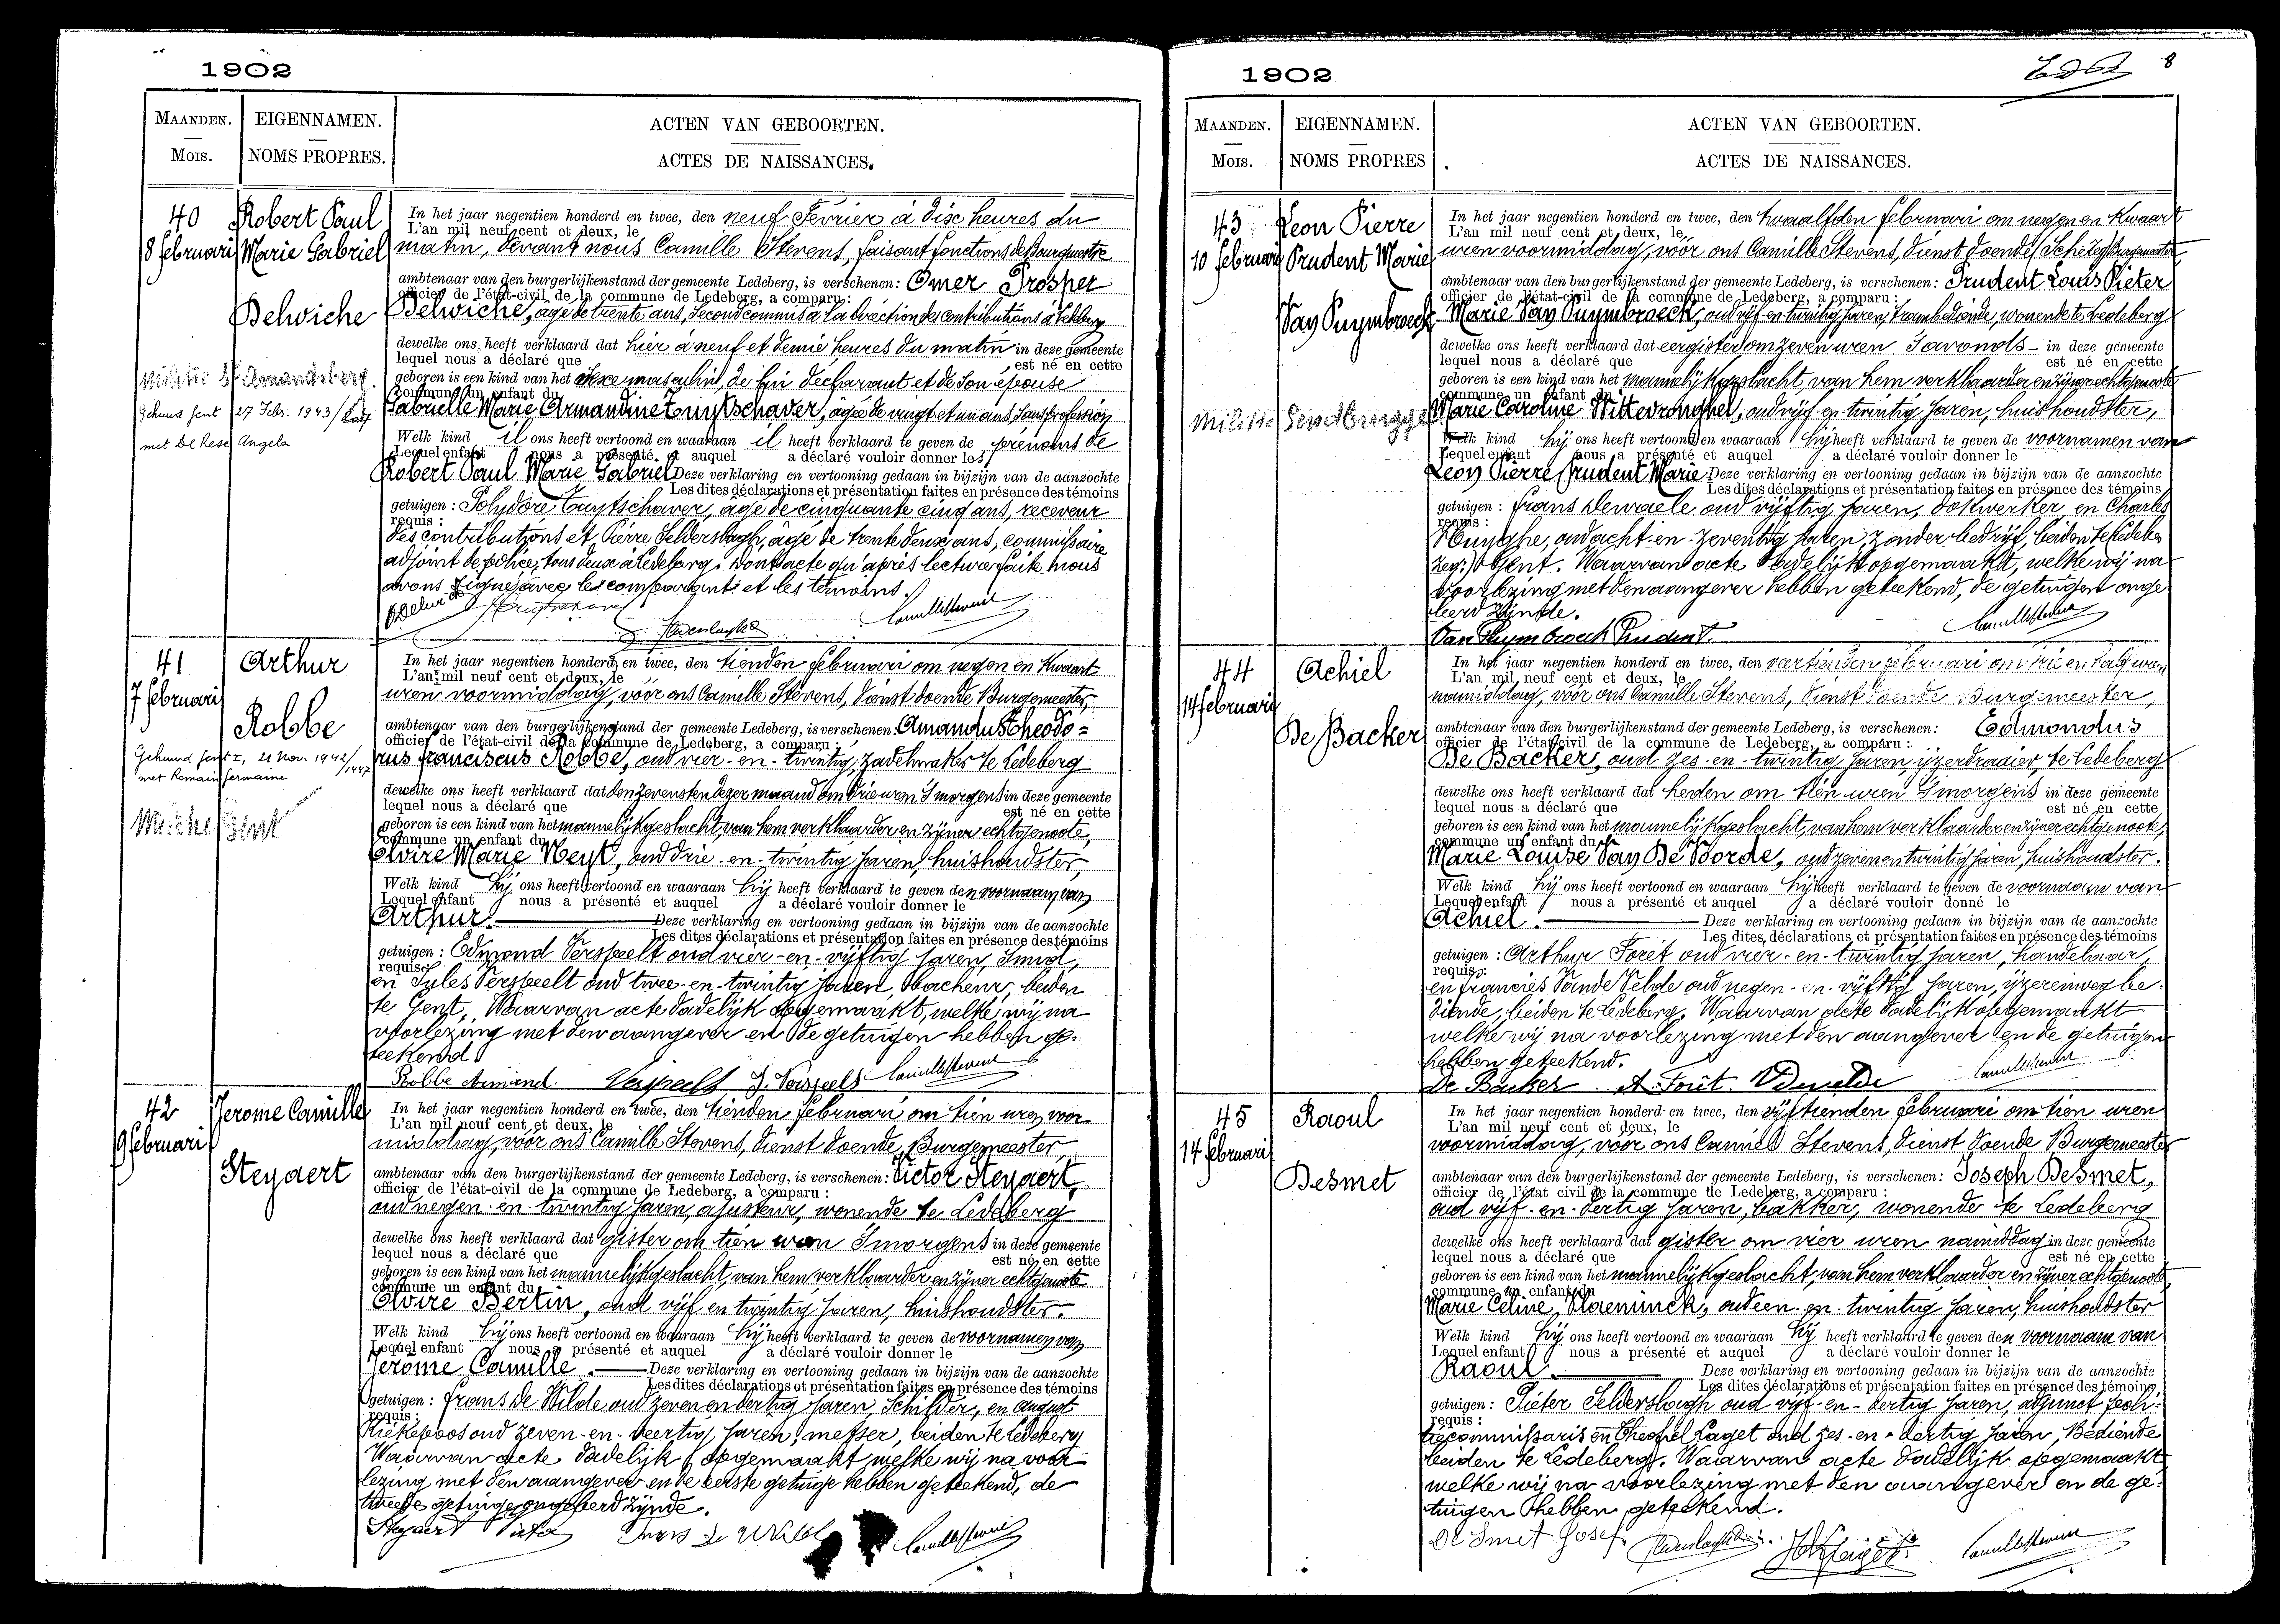 1902
MAANDEN.
Mois.
EIGENNAMEN.
NOMS PROPRES.
ACTEN VAN GEBOORTEN.
ACTES DE NAISSANCES.
40
8 februari
Robert Paul
Marie Gabriel
Delwiche
Militie St Amandsberg
Gehuwd Gent 27 Febr. 1943
met De Rese Angela
In het jaar negentien honderd en twee, den neuf Février à dise heures du
L'an mil neuf cent et deux, le
matin, devant nous Camille Stevens, faisant fonctions de Bourgmestre
ambtenaar van den burgerlijkenstand der gemeente Ledeberg, is verschenen: Omer Prosper
officier de l'état-civil de la commune de Ledeberg, a comparu:
Delwiche, âgé de trente ans, second commis à la direction des contributions à Ledeberg
dewelke ons heeft verklaard dat hier à neuf et demie heures du matin in deze gemeente
lequel nous a déclaré que est né en cette
geboren is een kind van het sexe masculin, de lui déclarant et de son épouse
commune un enfant du
Gabrielle Marie Armandine Tuytschaver, âgée de vingt et un ans, sans profession
Welk kind il ons heeft vertoond en waaraan il heeft verklaard te geven de prénoms de
Lequel enfant nous a présenté et auquel a déclaré vouloir donner les
Robert Paul Marie Gabriel Deze verklaring en vertooning gedaan in bijzijn van de aanzochte
Les dites déclarations et présentation faites en présence des témoins
getuigen: Polydore Tuytschaver, âgé de cinquante cinq ans, receveur
requis:
des contributions et Pierre Selderslagh, âgé de trente deux ans, commissaire
adjoint de police, tous deux à Ledeberg. Dont acte qu'après lecture faite nous
avons signé avec le comparant et les témoins.
41
7 februari
Arthur
Robbe
Gehuwd Gent I, 21 Nov. 1942
met Romain Germaine
Militie Gent
In het jaar negentien honderd en twee, den tienden februari om negen en kwaart
L'an mil neuf cent et deux, le
uren voormiddag, vóór ons Camille Stevens, dienst doende Burgemeester,
ambtenaar van den burgerlijkenstand der gemeente Ledeberg, is verschenen: Amandus Theodo=
officier de l'état-civil de la commune de Ledeberg, a comparu:
rus Franciscus Robbe, oud vier-en-twintig, zadelmaker te Ledeberg
dewelke ons heeft verklaard dat den zevensten dezer maand om drie uren 's morgens in deze gemeente
lequel nous a déclaré que est né en cette
geboren is een kind van het mannelijk geslacht, van hem verklaarder en zijner echtgenoote,
commune un enfant du
Elvire Marie Neyt, oud drie-en-twintig jaren, huishoudster,
Welk kind hij ons heeft vertoond en waaraan hij heeft verklaard te geven den voornaam van
Lequel enfant nous a présenté et auquel a déclaré vouloir donner le
Arthur. Deze verklaring en vertooning gedaan in bijzijn van de aanzochte
Les dites déclarations et présentation faites en présence des témoins
getuigen: Edmond Verspeelt oud vier-en-vijftig jaren, smid,
requis:
en Jules Verspeelt oud twee-en-twintig jaren, beiden
te Gent. Waarvan acte dadelijk opgemaakt, welke wij na
voorlezing met den aangever en de getuigen hebben ge-
teekend
Robbe Armand. Verspeelt J. Verspeelt Camille Stevens
42
9 februari
Jerome Camille
Steyaert
In het jaar negentien honderd en twee, den tienden februari om tien uren voor
L'an mil neuf cent et deux, le
middag, vóór ons Camille Stevens, dienst doende Burgemeester
ambtenaar van den burgerlijkenstand der gemeente Ledeberg, is verschenen: Victor Steyaert,
officier de l'état-civil de la commune de Ledeberg, a comparu:
oud negen-en-twintig jaren, ajusteur, wonende te Ledeberg
dewelke ons heeft verklaard dat gister om tien uren 's morgens in deze gemeente
lequel nous a déclaré que est né en cette
geboren is een kind van het mannelijk geslacht, van hem verklaarder en zijner echtgenoote
commune un enfant du
Elvire Bertin, oud vijf en twintig jaren, huishoudster.
Welk kind hij ons heeft vertoond en waaraan hij heeft verklaard te geven de voornamen van
Lequel enfant nous a présenté et auquel a déclaré vouloir donner le
Jerôme Camille. Deze verklaring en vertooning gedaan in bijzijn van de aanzochte
Les dites déclarations et présentation faites en présence des témoins
getuigen: Frans De Wilde oud zeven en dertig jaren, schilder, en August
requis:
Kiekepoos oud zeven-en-veertig jaren, metser, beiden te Ledeberg
Waarvan acte dadelijk opgemaakt welke wij na voor-
lezing met den aangever en de eerste getuige hebben geteekend, de
tweede getuige ongeleerd zijnde.
Steyaert Victor Frans De Wilde Camille Stevens
1902
8
MAANDEN.
Mois.
EIGENNAMEN.
NOMS PROPRES
ACTEN VAN GEBOORTEN.
ACTES DE NAISSANCES.
43
10 februari
Leon Pierre
Prudent Marie
Van Puymbroeck
Militie Gendbrugge
In het jaar negentien honderd en twee, den twaalfden februari om negen en kwaart
L'an mil neuf cent et deux, le
uren voormiddag, vóór ons Camille Stevens, dienst doende Burgemeester
ambtenaar van den burgerlijkenstand der gemeente Ledeberg, is verschenen: Prudent Louis Pieter
officier de l'état-civil de la commune de Ledeberg, a comparu:
Marie Van Puymbroeck, oud vijf en twintig jaren, trambediende, wonende te Ledeberg
dewelke ons heeft verklaard dat eergister om zeven uren 's avonds in deze gemeente
lequel nous a déclaré que est né en cette
geboren is een kind van het mannelijk geslacht, van hem verklaarder en zijner echtgenoote
commune un enfant du
Marie Caroline Wittevronghel, oud vijf-en-twintig jaren, huishoudster,
Welk kind hij ons heeft vertoond en waaraan hij heeft verklaard te geven de voornamen van
Lequel enfant nous a présenté et auquel a déclaré vouloir donner le
Leon Pierre Prudent Marie Deze verklaring en vertooning gedaan in bijzijn van de aanzochte
Les dites déclarations et présentation faites en présence des témoins
getuigen: Frans Dewaele oud vijftig jaren, dokwerker, en Charles
requis:
Huyghe, oud acht-en-zeventig jaren, zonder bedrijf, beiden te Ledeber
zeg: Gent. Waarvan acte dadelijk opgemaakt, welke wij na
voorlezing met den aangever hebben geteekend, de getuigen onge
leerd zijnde.
Van Puymbroeck Prudent. Camille Stevens
44
14 februari
Achiel
De Backer
In het jaar negentien honderd en twee, den veertienden februari om drie en half uren
L'an mil neuf cent et deux, le
namiddag, vóór ons Camille Stevens, dienst doende Burgemeester,
ambtenaar van den burgerlijkenstand der gemeente Ledeberg, is verschenen: Edmondus
officier de l'état-civil de la commune de Ledeberg, a comparu:
De Backer, oud zes-en-twintig jaren, ijzerdraaier, te Ledeberg
dewelke ons heeft verklaard dat heden om tien uren 's morgens in deze gemeente
lequel nous a déclaré que est né en cette
geboren is een kind van het mannelijk geslacht, van hem verklaarder en zijner echtgenoote,
commune un enfant du
Marie Louise Van De Voorde, oud zeven en twintig jaren, huishoudster.
Welk kind hij ons heeft vertoond en waaraan hij heeft verklaard te geven de voornaam van
Lequel enfant nous a présenté et auquel a déclaré vouloir donné le
Achiel. Deze verklaring en vertooning gedaan in bijzijn van de aanzochte
Les dites déclarations et présentation faites en présence des témoins
getuigen: Arthur Forêt oud vier-en-twintig jaren, handelaar,
requis:
en Francies Vande Velde oud negen-en-vijftig jaren, ijzerenweg be-
diende, beiden te Ledeberg. Waarvan acte dadelijk opgemaakt
welke wij na voorlezing met den aangever en de getuigen
hebben geteekend.
De Backer A. Forêt. Camille Stevens
45
14 februari
Raoul
Desmet
In het jaar negentien honderd en twee, den vijftienden februari om tien uren
L'an mil neuf cent et deux, le
voormiddag, vóór ons Camiel Stevens, dienst doende Burgemeester
ambtenaar van den burgerlijkenstand der gemeente Ledeberg, is verschenen: Joseph Desmet,
officier de l'état civil de la commune de Ledeberg, a comparu:
oud vijf-en-dertig jaren, bakker, wonende te Ledeberg
dewelke ons heeft verklaard dat gister om vier uren namiddag in deze gemeente
lequel nous a déclaré que est né en cette
geboren is een kind van het mannelijk geslacht, van hem verklaarder en zijner echtgenoote,
commune un enfant du
Marie Celine Vlaeminck, oud een-en-twintig jaren, huishoudster
Welk kind hij ons heeft vertoond en waaraan hij heeft verklaard te geven den voornaam van
Lequel enfant nous a présenté et auquel a déclaré vouloir donner le
Raoul. Deze verklaring en vertooning gedaan in bijzijn van de aanzochte
Les dites déclarations et présentation faites en présence des témoins
getuigen: Pieter Selderslagh oud vijf-en-dertig jaren, adjunct poli-
requis:
tiecommissaris en Theophiel Laget oud zes-en-dertig jaren, Bediende
beiden te Ledeberg. Waarvan acte dadelijk opgemaakt
welke wij na voorlezing met den aangever en de ge-
tuigen hebben geteekend.
De Smet Josef. Camille Stevens